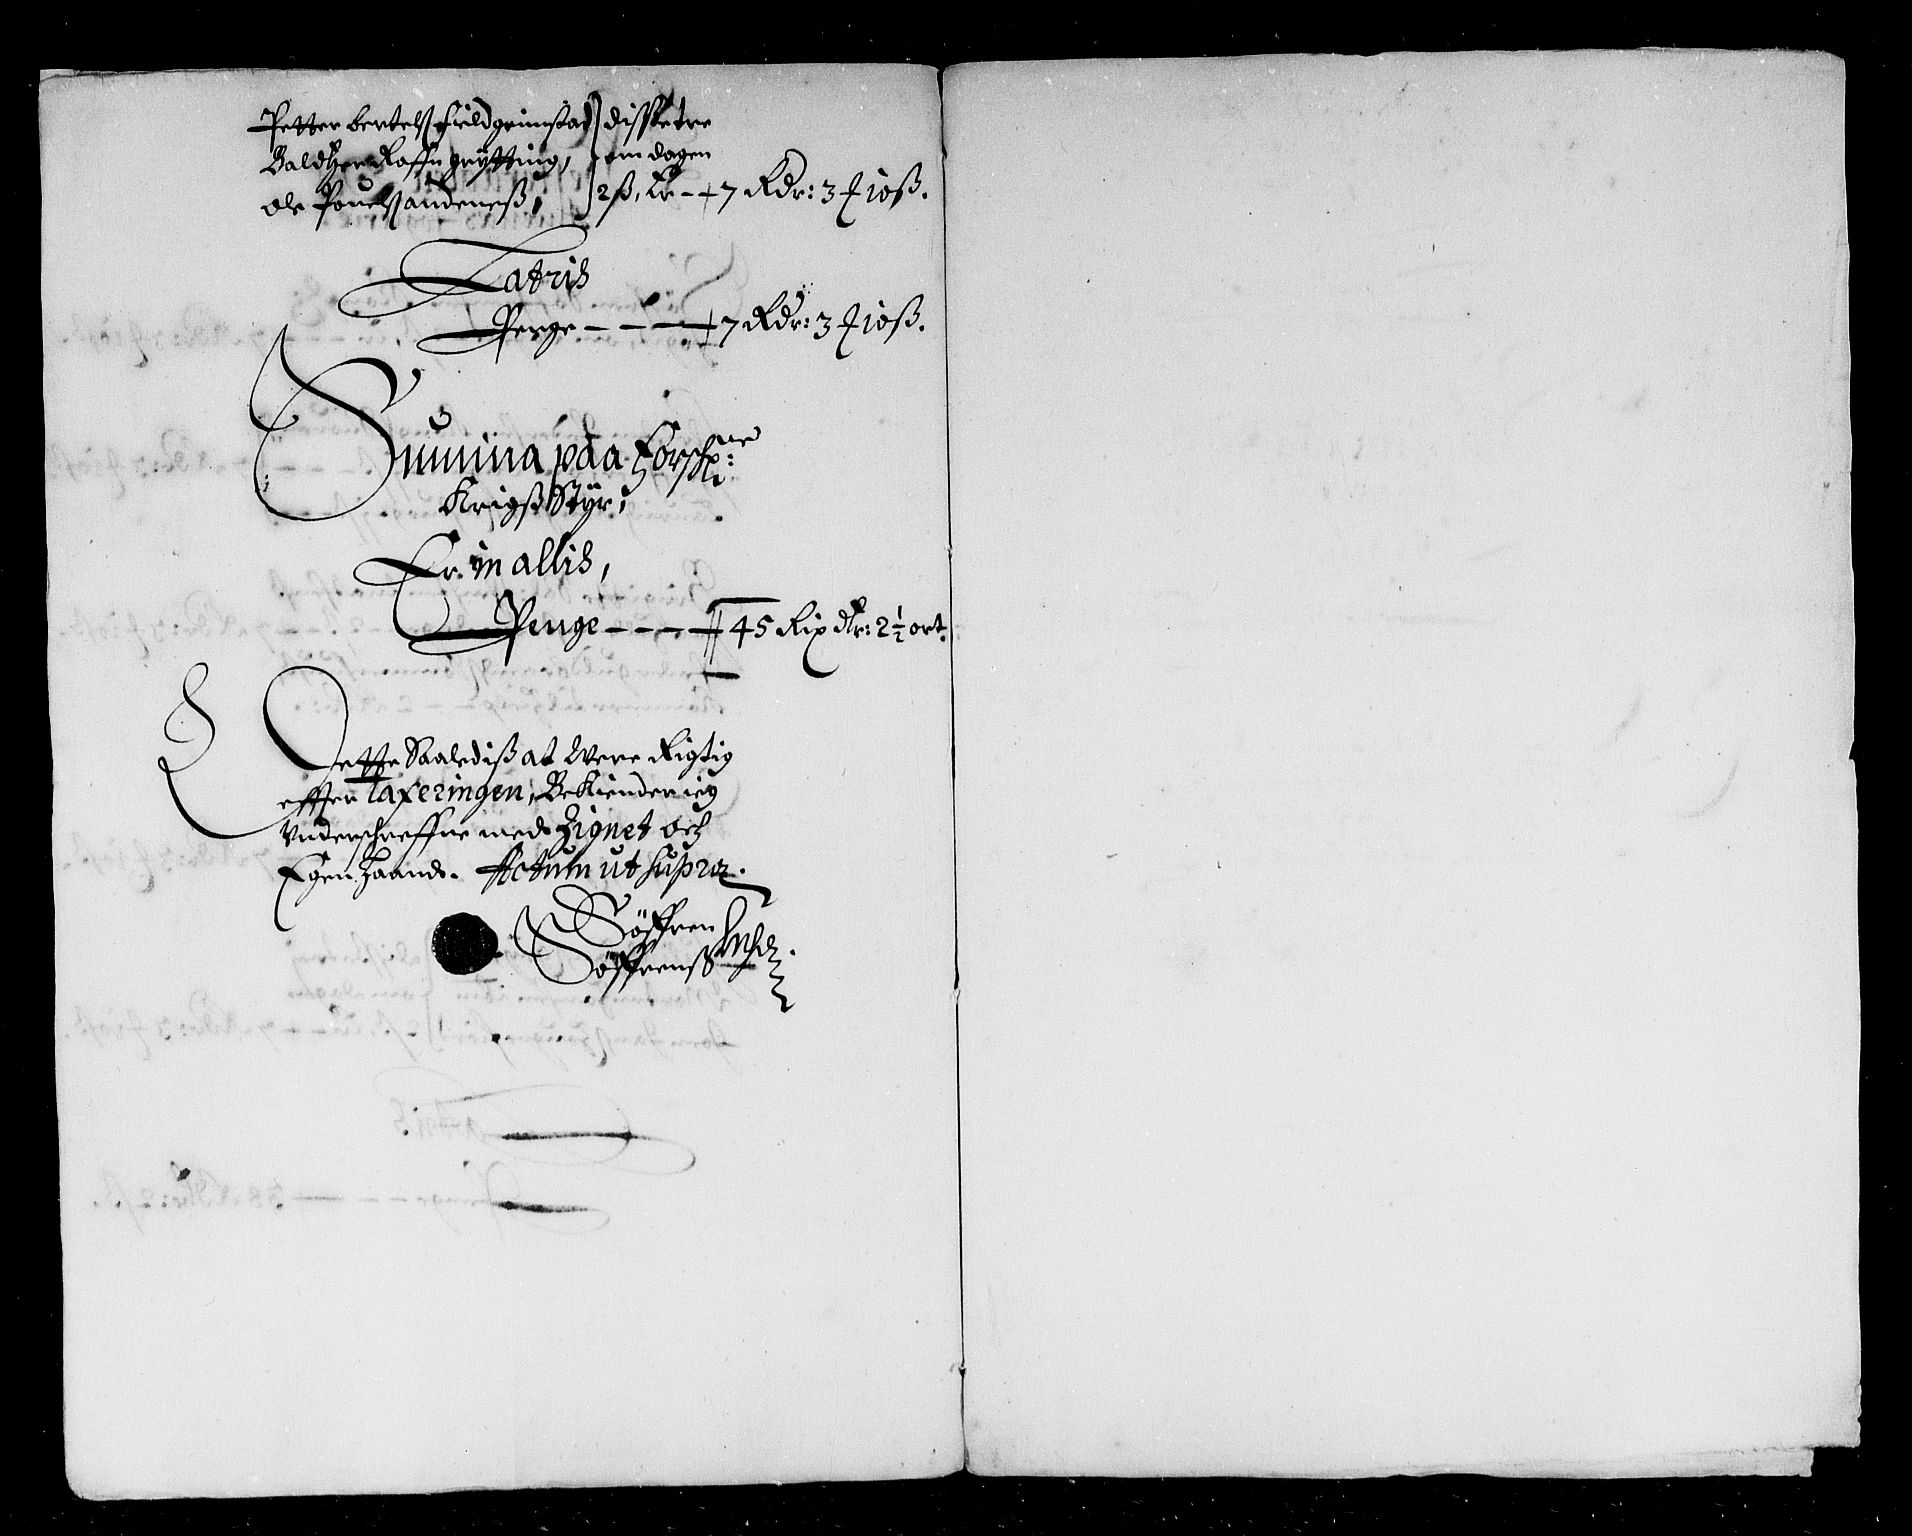 Petter bertelß fieldgrimstad } disse tre
Baldtzer Raffn grytting, } om dagen
ole Pouelß andeneß, } 2 ß, Er - 7 Rdr: 3 ƒ 10 ß.
Lateris
Penge - - - 7 Rdr: 3 ƒ 10 ß.
Summa paa Forschr:ne
Krigß Styr,
Er in allis,
Penge - - - 45 Rix dlr: 2 1/2 ort.
Dette Saalediß at Were Rigtig
effter Taxeringen, Bekiender ieg
Vnderschreffne med Zignet och
Egen Haand. Actum ut supra.
Söffren
Söffrenß